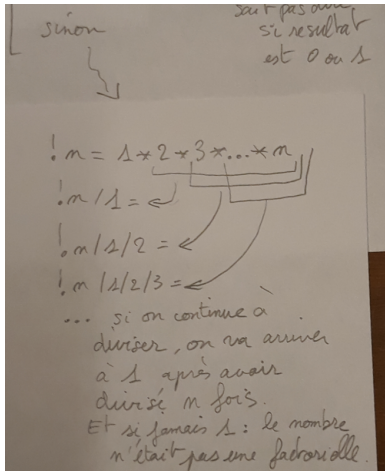 sinon
si resultat
est 0 ou 1
!n = 1 * 2 * 3 * ... * n
!n / 1 =
!n / 1 / 2 =
!n / 1 / 2 / 3 =
... si on continue à
diviser, on va arriver
à 1 après avoir
divisé n fois.
Et si jamais 1 : le nombre
n'était pas une factorielle.